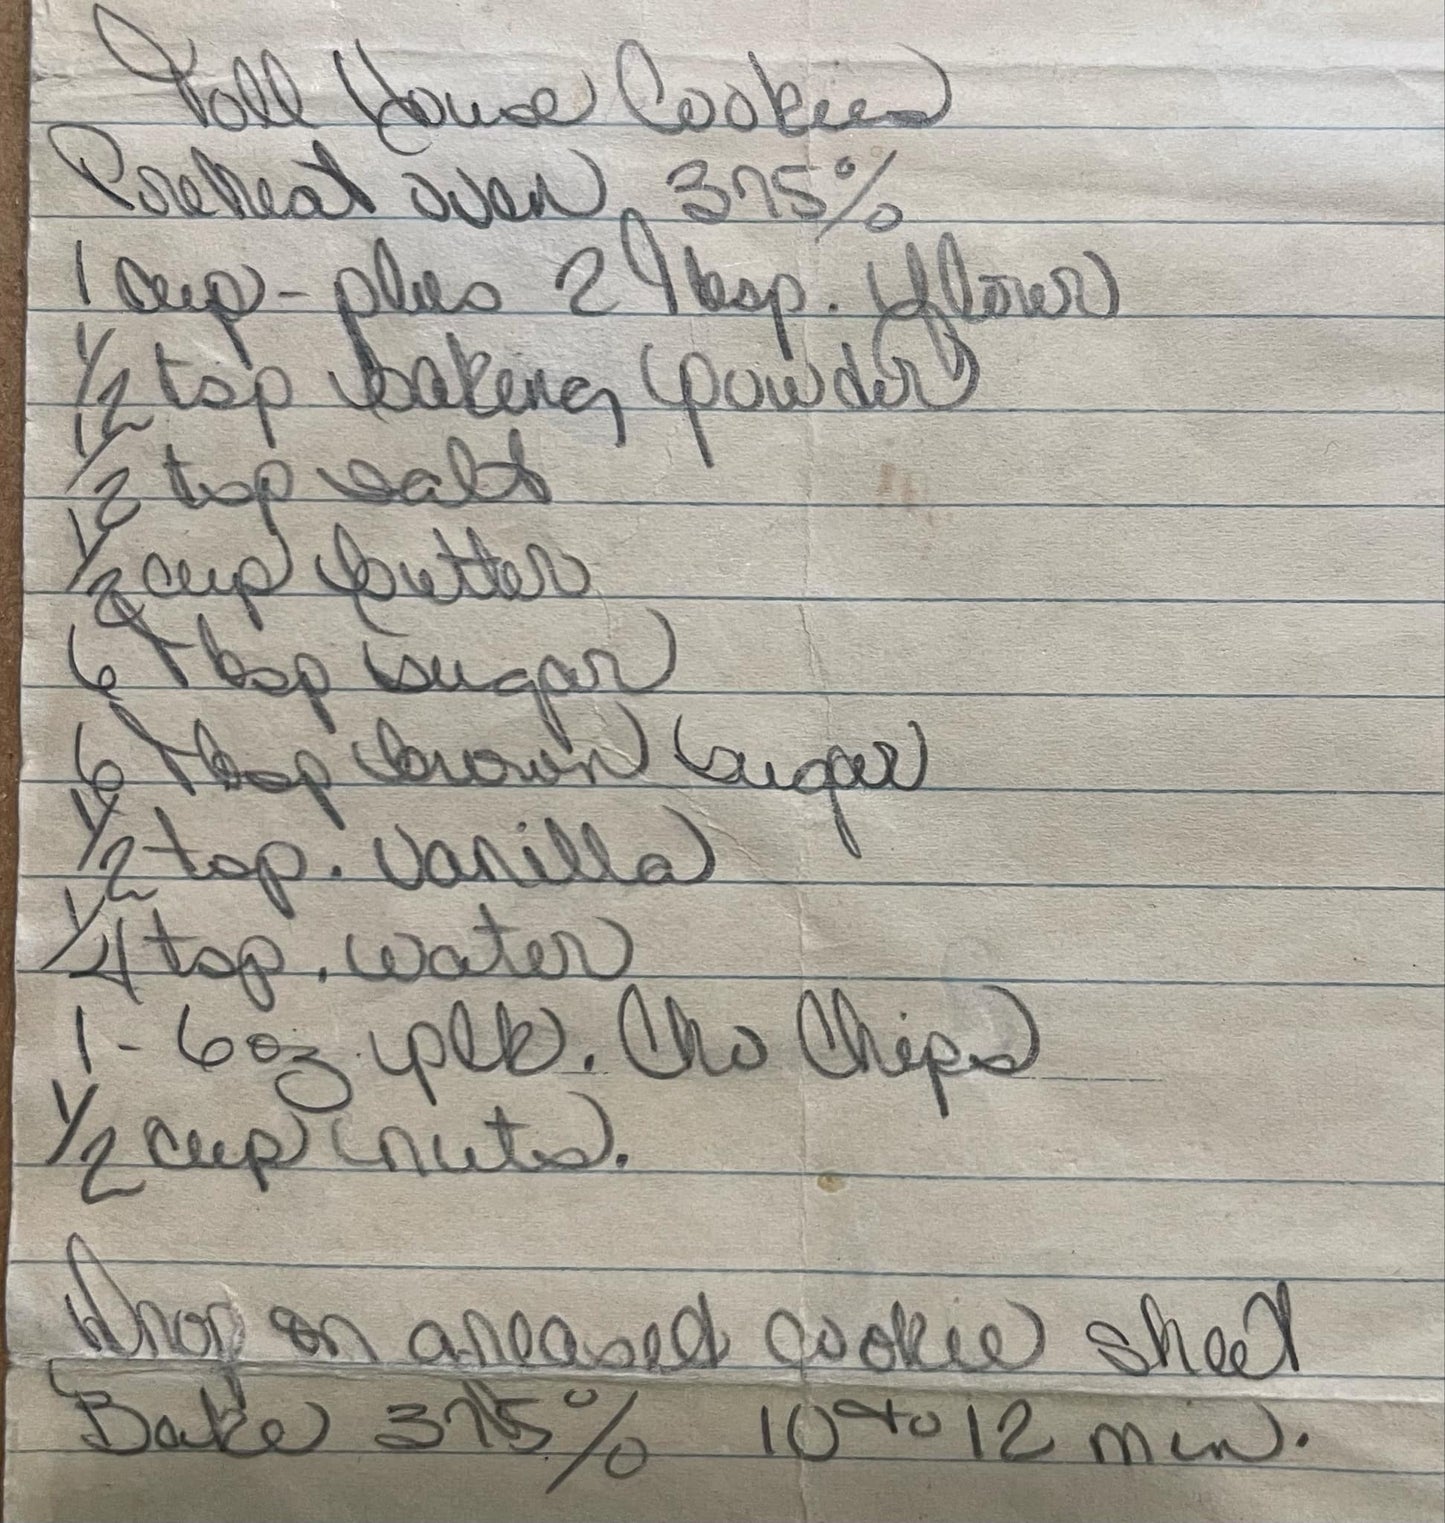 Toll House Cookies
Preheat oven 375%
1 cup - plus 2 Tbsp. flour
1/2 tsp baking powder
1/2 tsp salt
1/2 cup butter
6 Tbsp sugar
6 Tbsp brown sugar
1/2 tsp. vanilla
1/4 tsp. water
1 - 6 oz. pk. Cho Chips
1/2 cup nuts.
Drop on greased cookie sheet
Bake 375% 10 to 12 min.